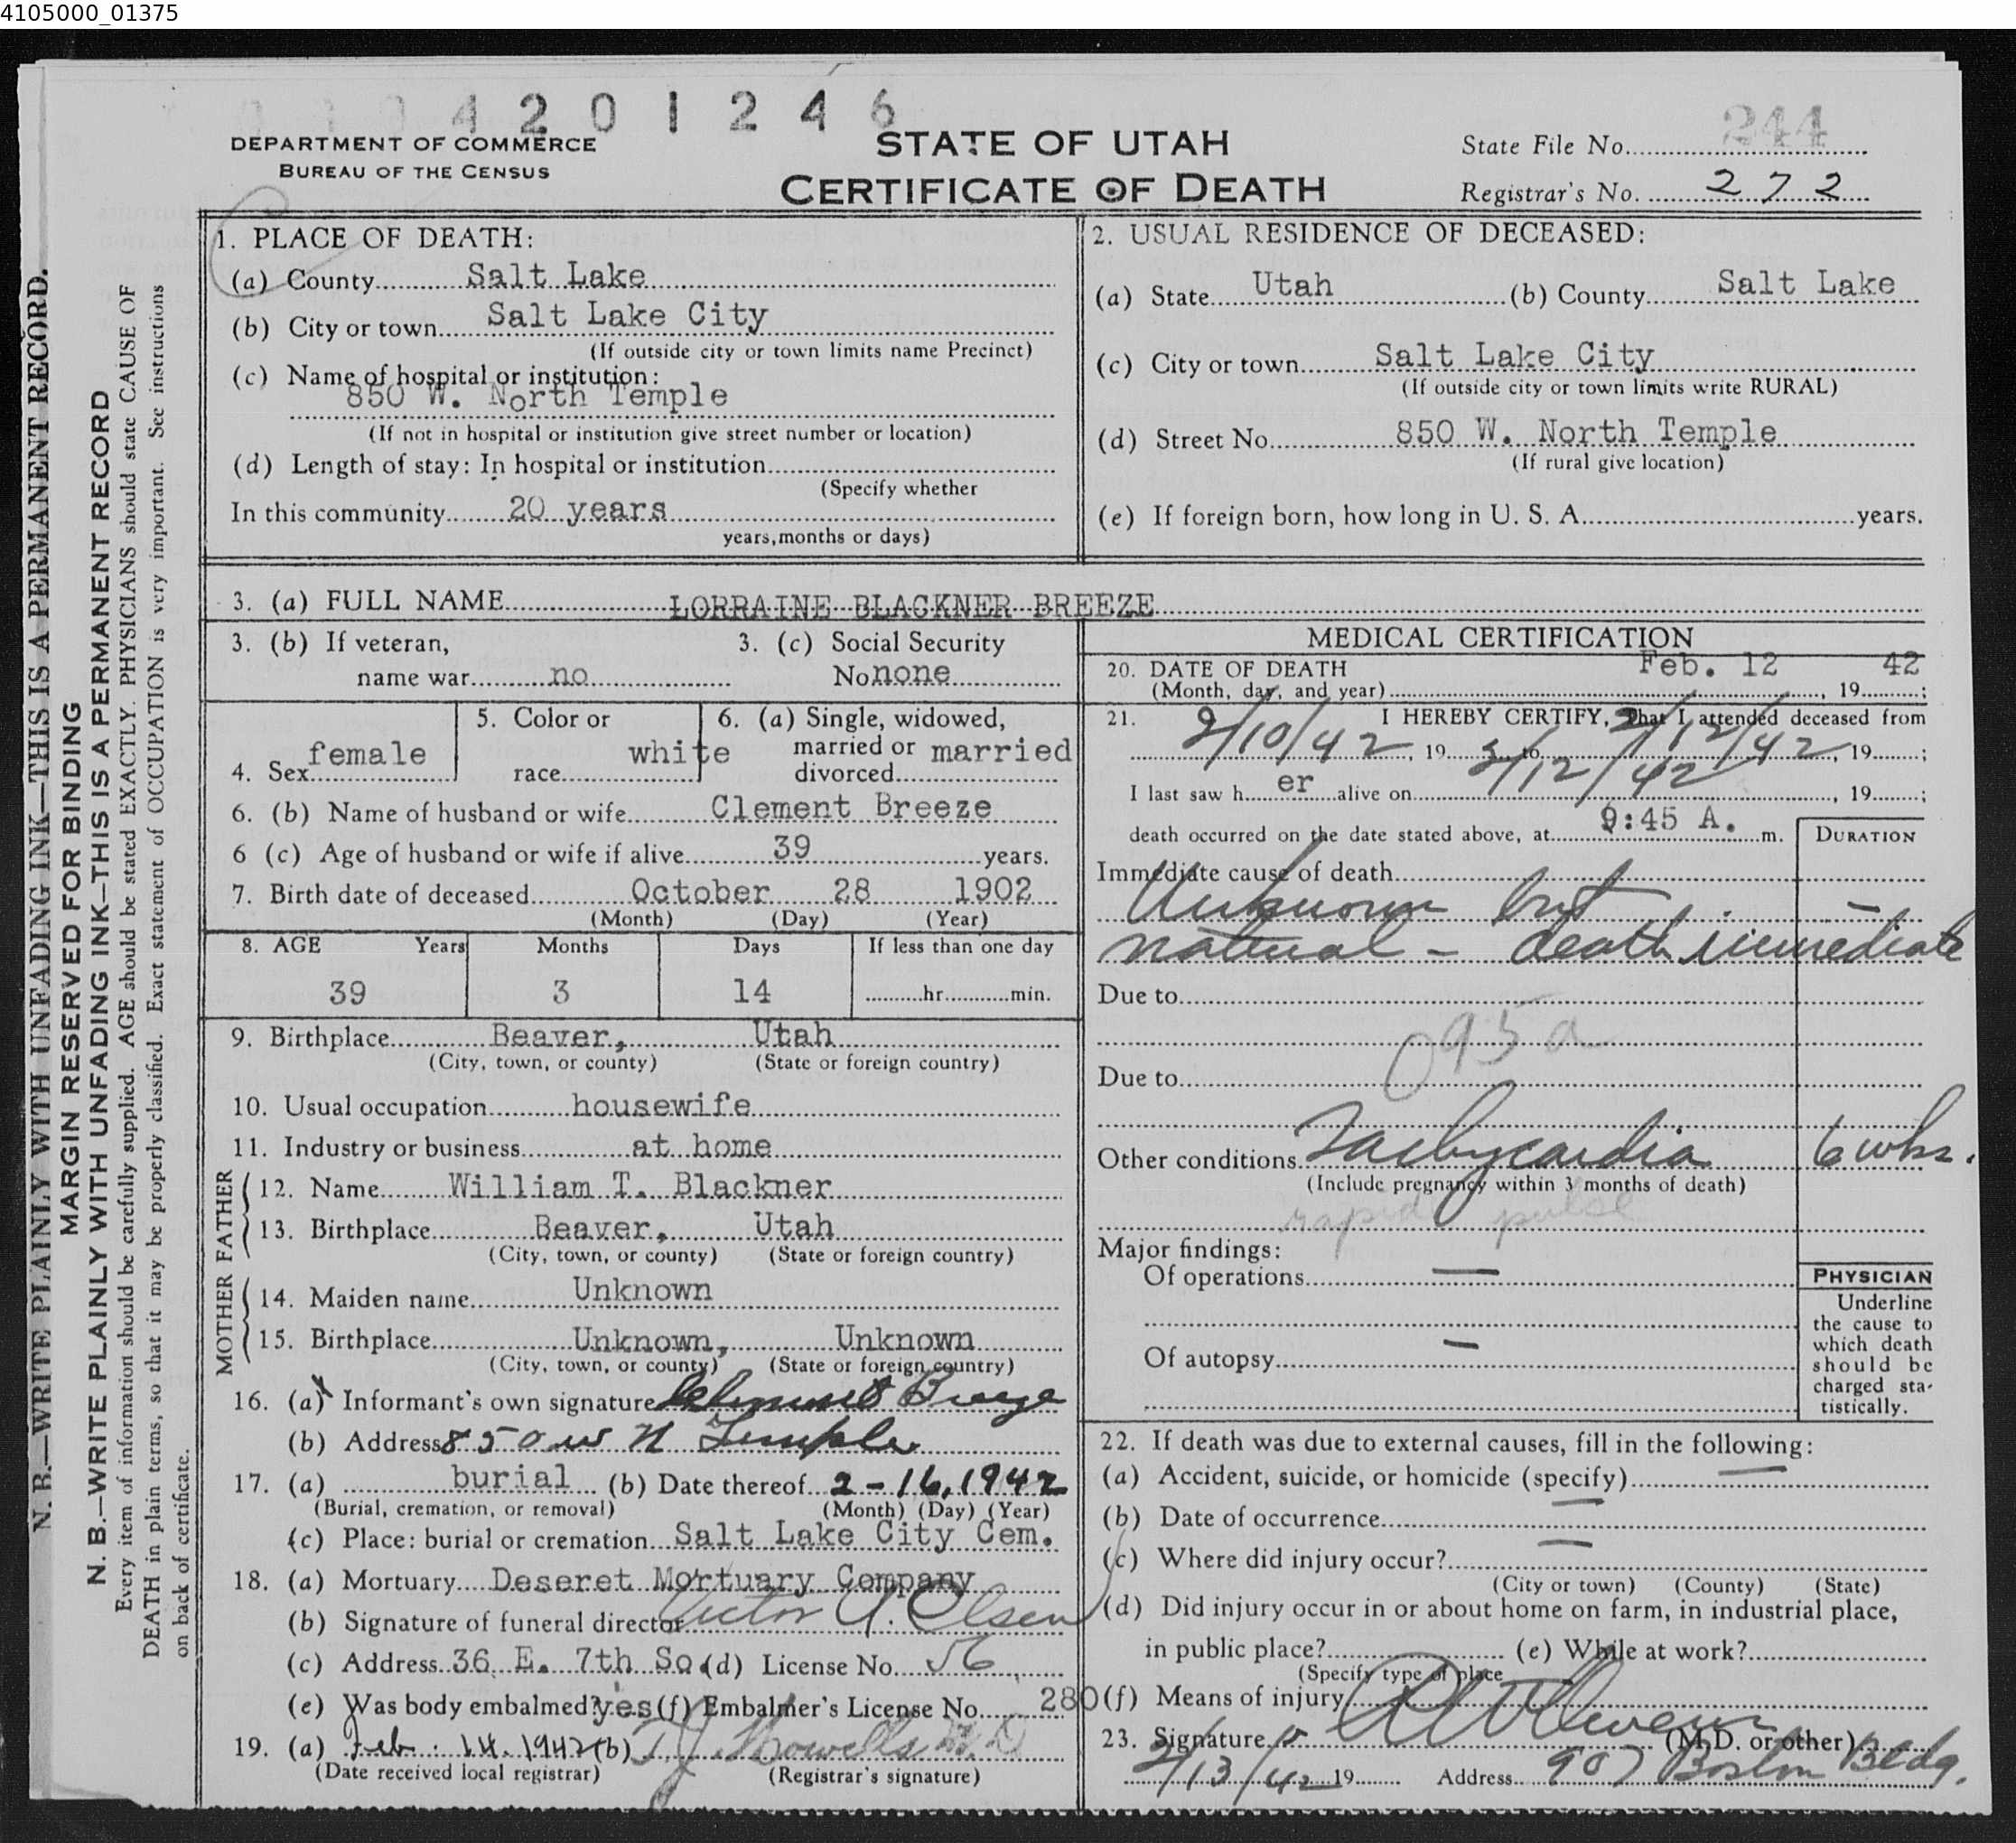 4105000_01375
4 2 0 1 2 4 6
DEPARTMENT OF COMMERCE
BUREAU OF THE CENSUS
STATE OF UTAH
CERTIFICATE OF DEATH
State File No. 244
Registrar's No. 272
N. B.—WRITE PLAINLY WITH UNFADING INK—THIS IS A PERMANENT RECORD.
MARGIN RESERVED FOR BINDING
N. B.—WRITE PLAINLY WITH UNFADING INK—THIS IS A PERMANENT RECORD
Every item of information should be carefully supplied. AGE should be stated EXACTLY. PHYSICIANS should state CAUSE OF
DEATH in plain terms, so that it may be properly classified. Exact statement of OCCUPATION is very important. See instructions
on back of certificate.
1. PLACE OF DEATH:
(a) County Salt Lake
(b) City or town Salt Lake City
(If outside city or town limits name Precinct)
(c) Name of hospital or institution:
850 W. North Temple
(If not in hospital or institution give street number or location)
(d) Length of stay: In hospital or institution
(Specify whether
In this community 20 years
years, months or days)
2. USUAL RESIDENCE OF DECEASED:
(a) State Utah (b) County Salt Lake
(c) City or town Salt Lake City
(If outside city or town limits write RURAL)
(d) Street No. 850 W. North Temple
(If rural give location)
(e) If foreign born, how long in U. S. A. years.
3. (a) FULL NAME LORRAINE BLACKNER BREEZE
3. (b) If veteran,
name war no
3. (c) Social Security
No none
4. Sex female
5. Color or
race white
6. (a) Single, widowed,
married or
divorced married
6. (b) Name of husband or wife Clement Breeze
6 (c) Age of husband or wife if alive 39 years.
7. Birth date of deceased October 28 1902
(Month) (Day) (Year)
8. AGE Years Months Days If less than one day
39 3 14 hr. min.
9. Birthplace Beaver, Utah
(City, town, or county) (State or foreign country)
10. Usual occupation housewife
11. Industry or business at home
FATHER
12. Name William T. Blackner
13. Birthplace Beaver, Utah
(City, town, or county) (State or foreign country)
MOTHER
14. Maiden name Unknown
15. Birthplace Unknown, Unknown
(City, town, or county) (State or foreign country)
16. (a) Informant's own signature Clement Breeze
(b) Address 850 W N Temple
17. (a) burial (b) Date thereof 2-16, 1942
(Burial, cremation, or removal) (Month) (Day) (Year)
(c) Place: burial or cremation Salt Lake City Cem.
18. (a) Mortuary Deseret Mortuary Company
(b) Signature of funeral director Victor A. Olsen
(c) Address 36 E. 7th So (d) License No. 56
(e) Was body embalmed? yes (f) Embalmer's License No. 280
19. (a) Feb. 14, 1942 (b) T J Howells M.D
(Date received local registrar) (Registrar's signature)
MEDICAL CERTIFICATION
20. DATE OF DEATH
(Month, day, and year) Feb. 12, 19 42;
21. I HEREBY CERTIFY, That I attended deceased from
2/10/42, 19 to 2/12/42, 19 ;
I last saw h er alive on 2/12/42, 19 ;
death occurred on the date stated above, at 9:45 A. m.
DURATION
Immediate cause of death
Unknown but —
natural - death immediate
Due to
095a
Due to
Other conditions Tachycardia 6 wks.
(Include pregnancy within 3 months of death)
rapid pulse
Major findings:
Of operations —
Of autopsy —
PHYSICIAN
Underline
the cause to
which death
should be
charged sta-
tistically.
22. If death was due to external causes, fill in the following:
(a) Accident, suicide, or homicide (specify) —
(b) Date of occurrence —
(c) Where did injury occur? —
(City or town) (County) (State)
(d) Did injury occur in or about home on farm, in industrial place,
in public place? (e) While at work?
(Specify type of place
(f) Means of injury
23. Signature (M.D. or other)
2/13/42 19 Address 907 Boston Bldg.